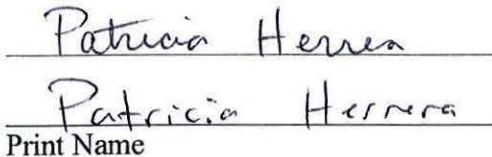 Patricia Herrera
Patricia Herrera
Print Name